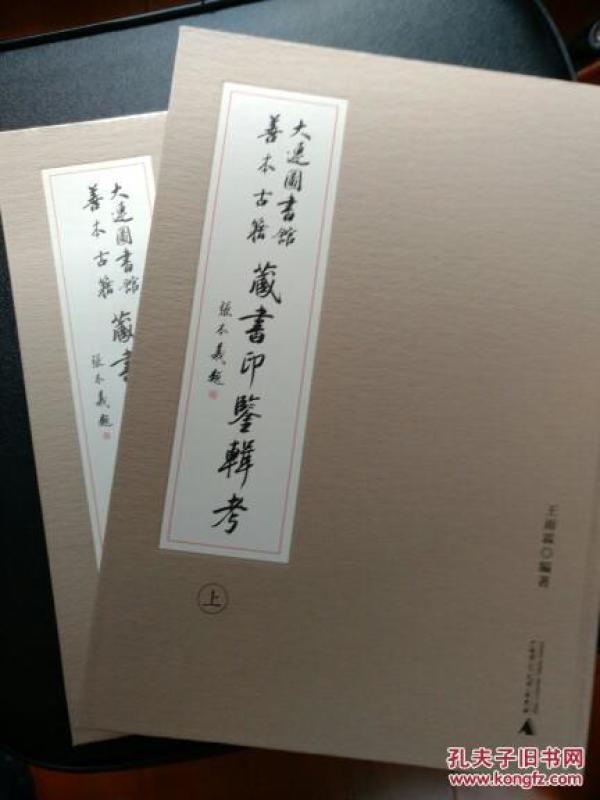 大連圖書館
善本古籍
藏書印鑒輯考
張本義題
上
王雨霖◎編著
大連圖書館
善本古籍
藏書
張本義題
孔夫子旧书网
www.kongfz.com